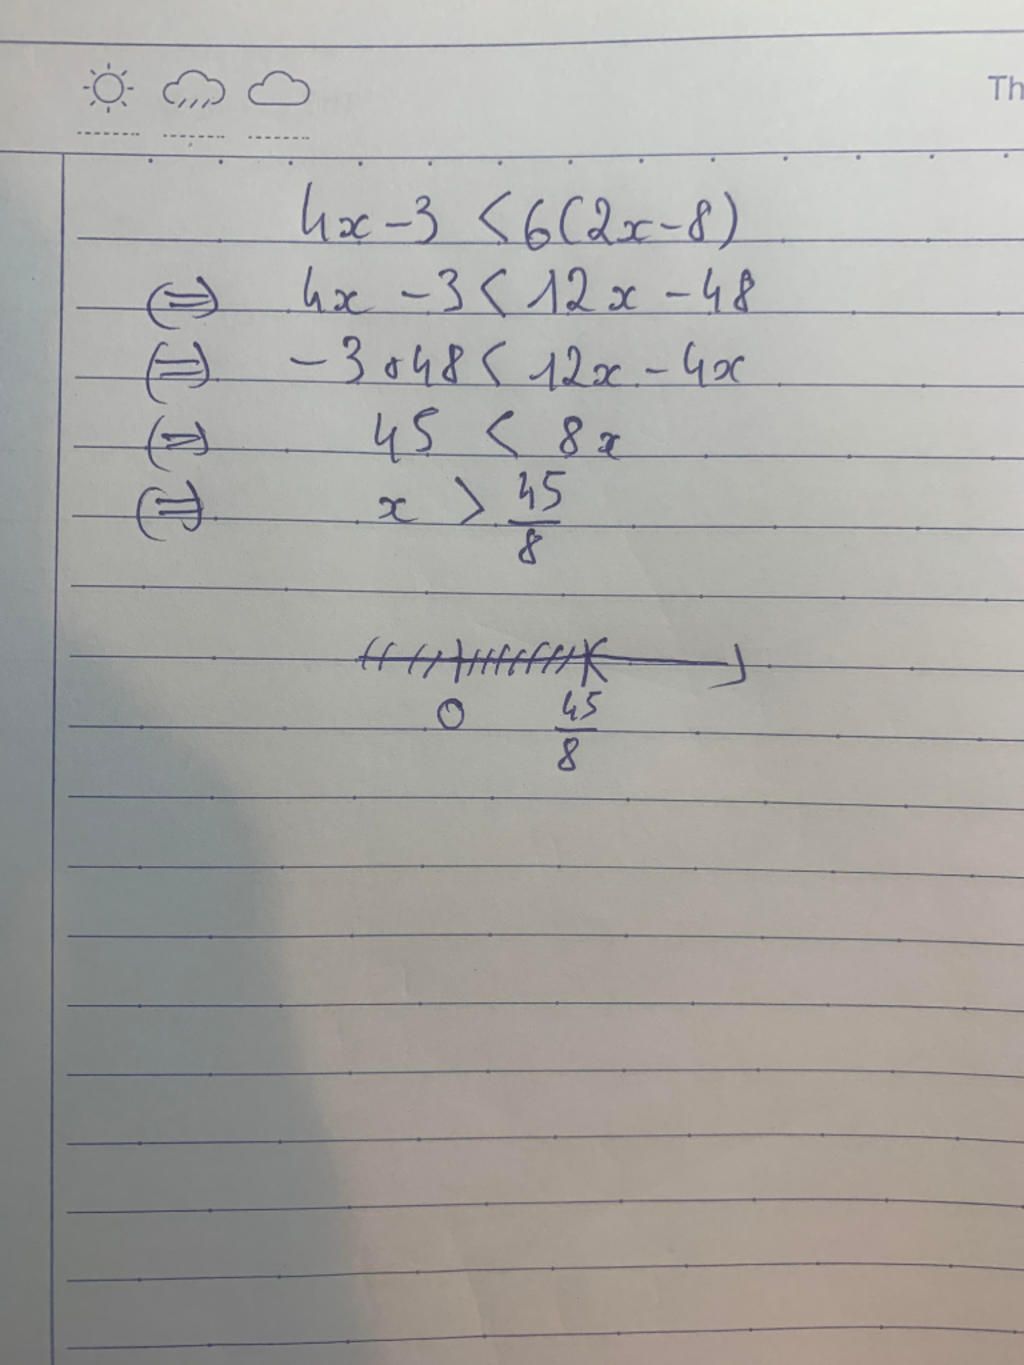 Th
4x - 3 < 6(2x - 8)
(=) 4x - 3 < 12x - 48
(=) - 3 + 48 < 12x - 4x
(=) 45 < 8x
(=) x > 45/8
0 45/8